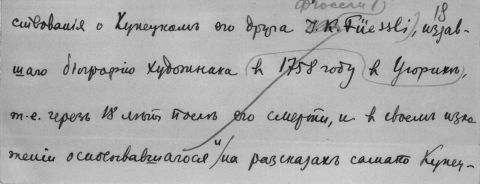 Фюссли)
ствованія о Купецкомъ его друга J. K. Füessli), 18 издав-
шаго біографію художника въ 1758 году въ Цюрихѣ,
т.-е. черезъ 18 лѣтъ послѣ его смерти, и въ своемъ изло
женіи основывавшагося и на разсказахъ самаго Купец-